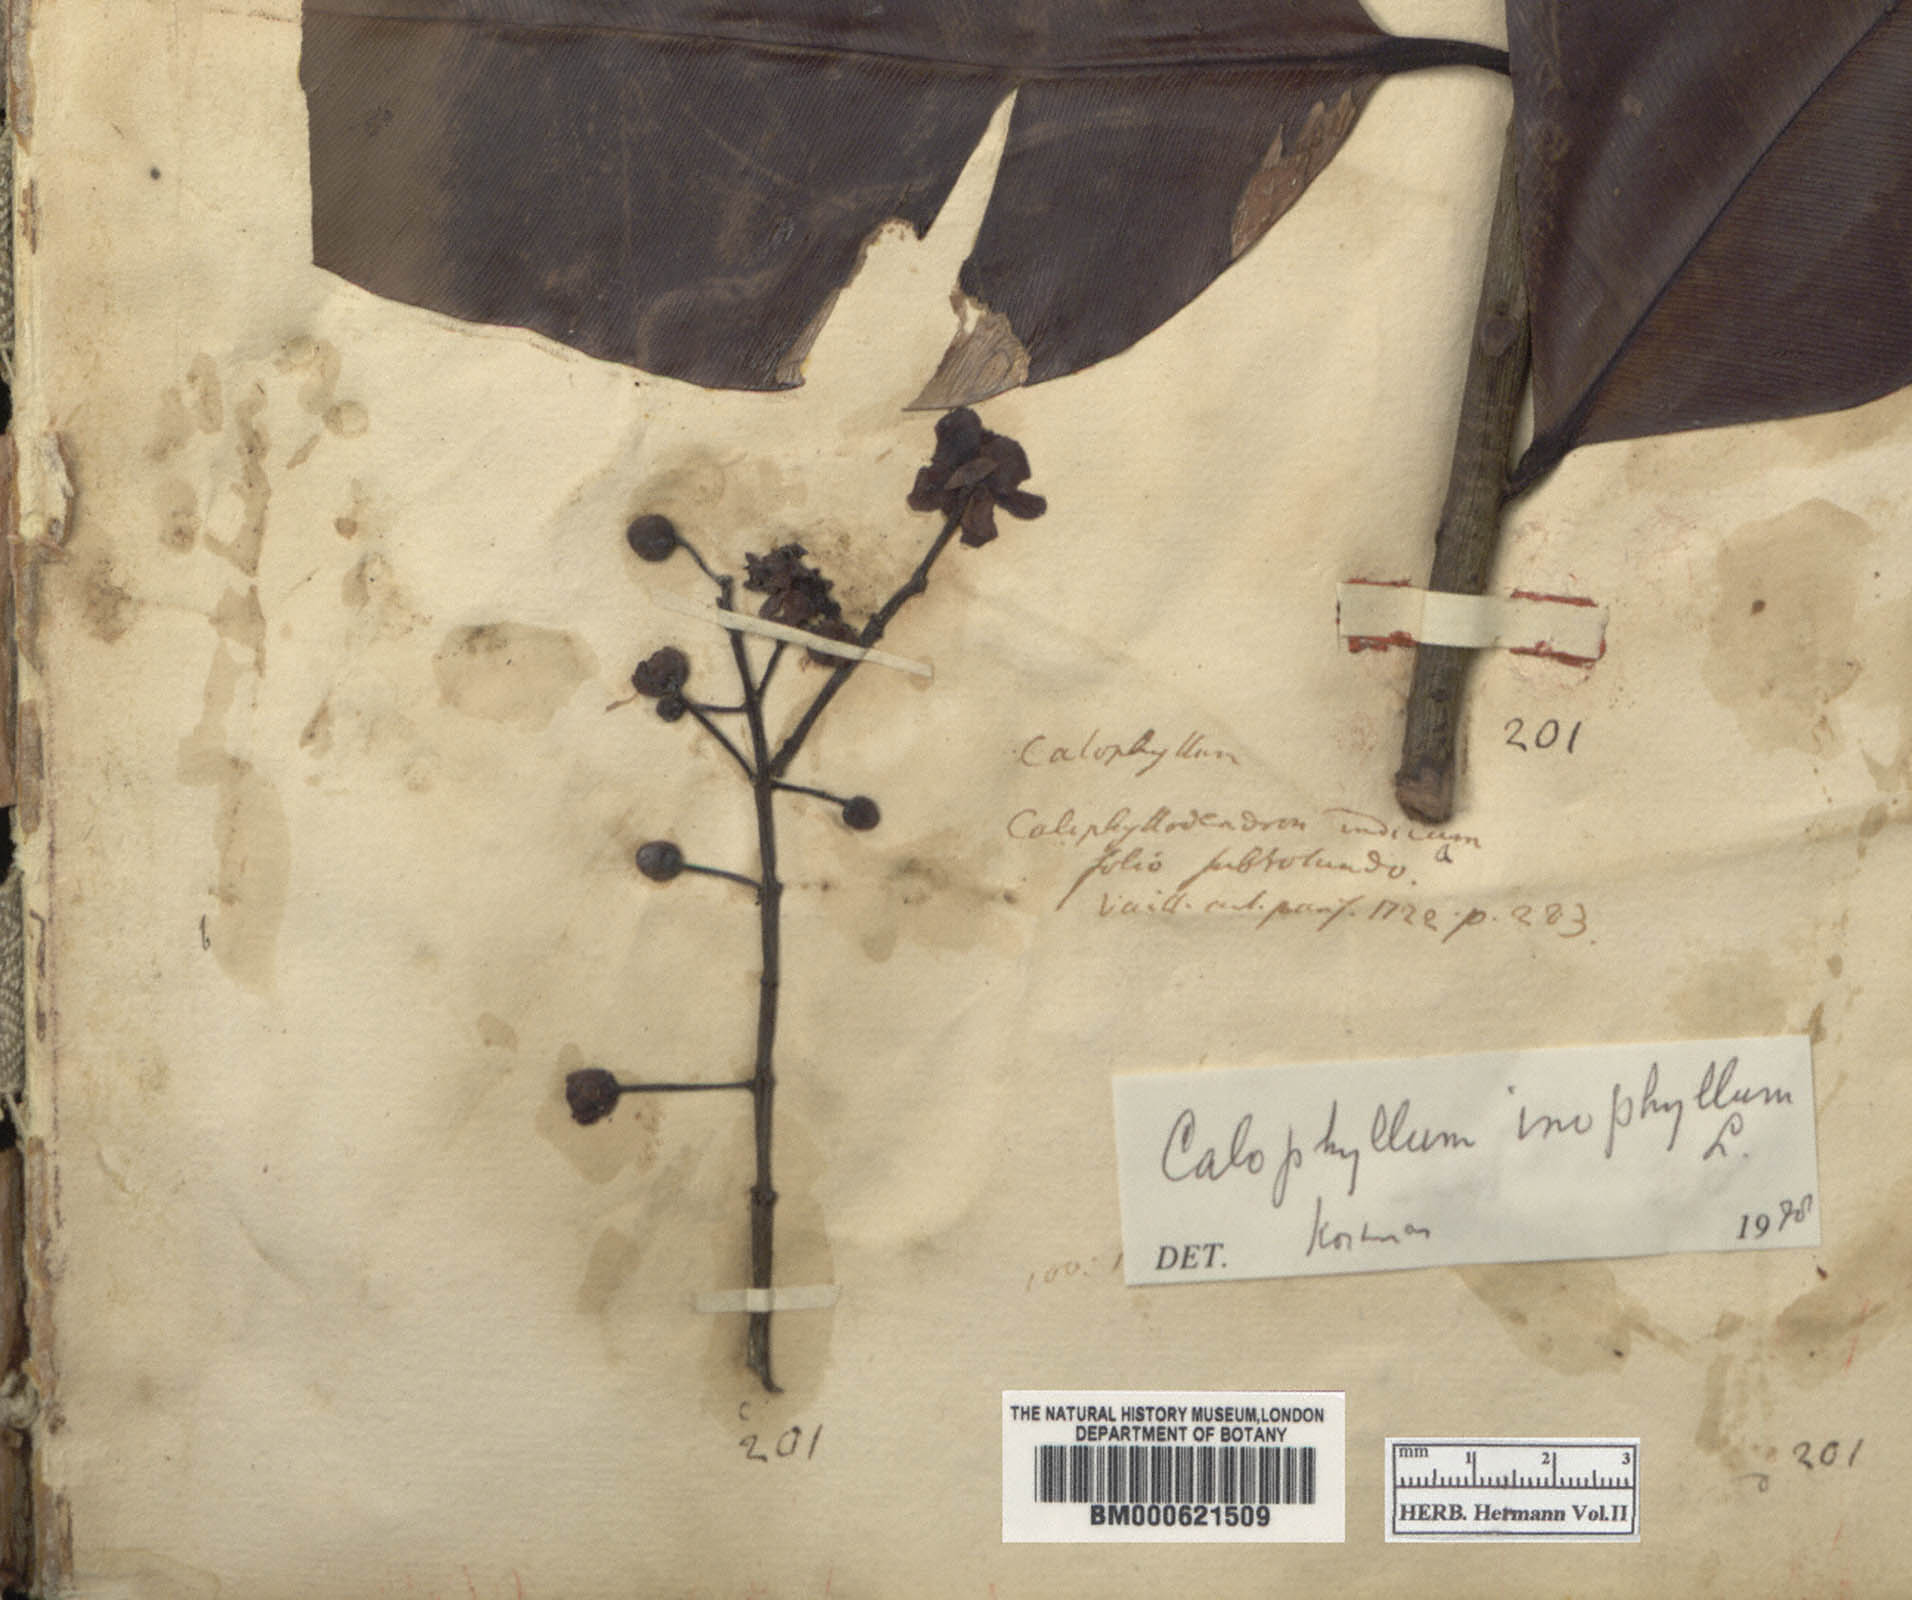 201
Calophyllum
Calophyllodendron indicum
folio subrotundo. a
Vaill. act. paris. 1722. p. 283.
Calophyllum inophyllum
L.
DET. Kosterm 1978
201
THE NATURAL HISTORY MUSEUM,LONDON
DEPARTMENT OF BOTANY
BM000621509
mm 1 2 3
HERB. Hermann Vol.II
201